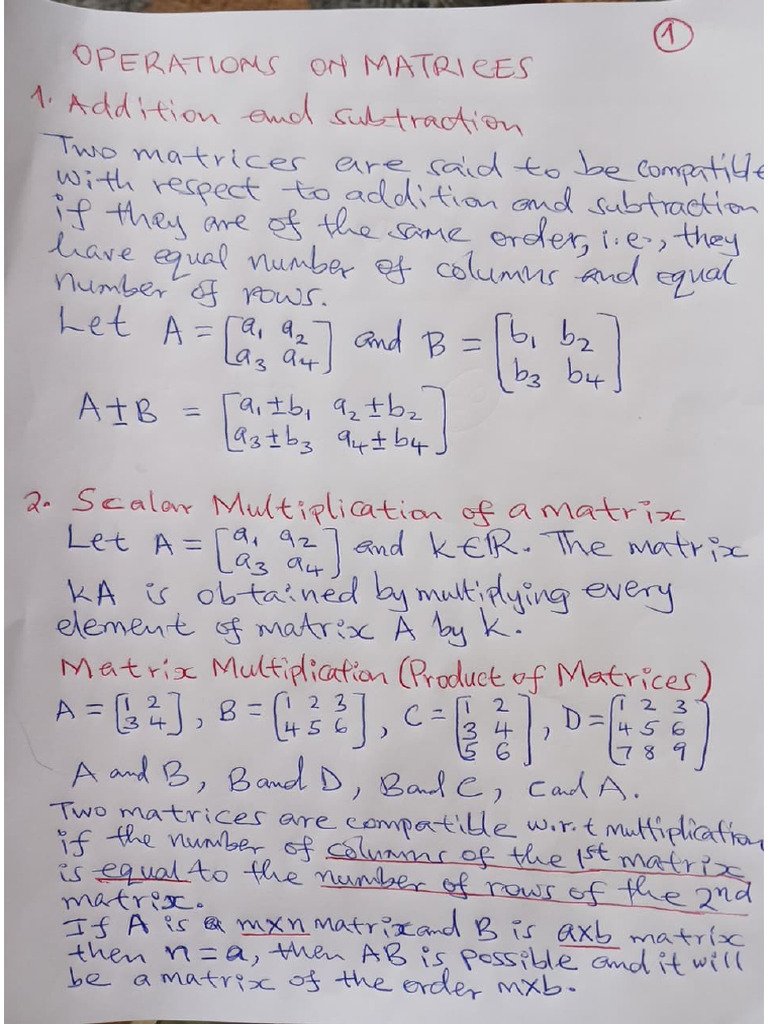 1
OPERATIONS ON MATRICES
1. Addition and subtraction
Two matrices are said to be compatible
with respect to addition and subtraction
if they are of the same order, i.e., they
have equal number of columns and equal
number of rows.
Let A = [a₁ a₂; a₃ a₄] and B = [b₁ b₂; b₃ b₄]
A±B = [a₁±b₁ a₂±b₂; a₃±b₃ a₄±b₄]
2. Scalar Multiplication of a matrix
Let A = [a₁ a₂; a₃ a₄] and k∈ℝ. The matrix
kA is obtained by multiplying every
element of matrix A by k.
Matrix Multiplication (Product of Matrices)
A = [1 2; 3 4], B = [1 2 3; 4 5 6], C = [1 2; 3 4; 5 6], D = [1 2 3; 4 5 6; 7 8 9]
A and B, B and D, B and C, C and A.
Two matrices are compatible w.r.t multiplication
if the number of columns of the 1st matrix
is equal to the number of rows of the 2nd
matrix.
If A is a m×n matrix and B is a×b matrix
then n = a, then AB is possible and it will
be a matrix of the order m×b.